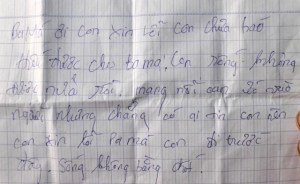 Ba má ơi con xin lỗi con chưa báo
hiếu được cho ba má. Con sống không
được nữa rồi. mang nỗi oan
người nhưng chẳng có ai tin con nên
con xin lỗi ba má con đi trước
đây. Sống không bằng chết